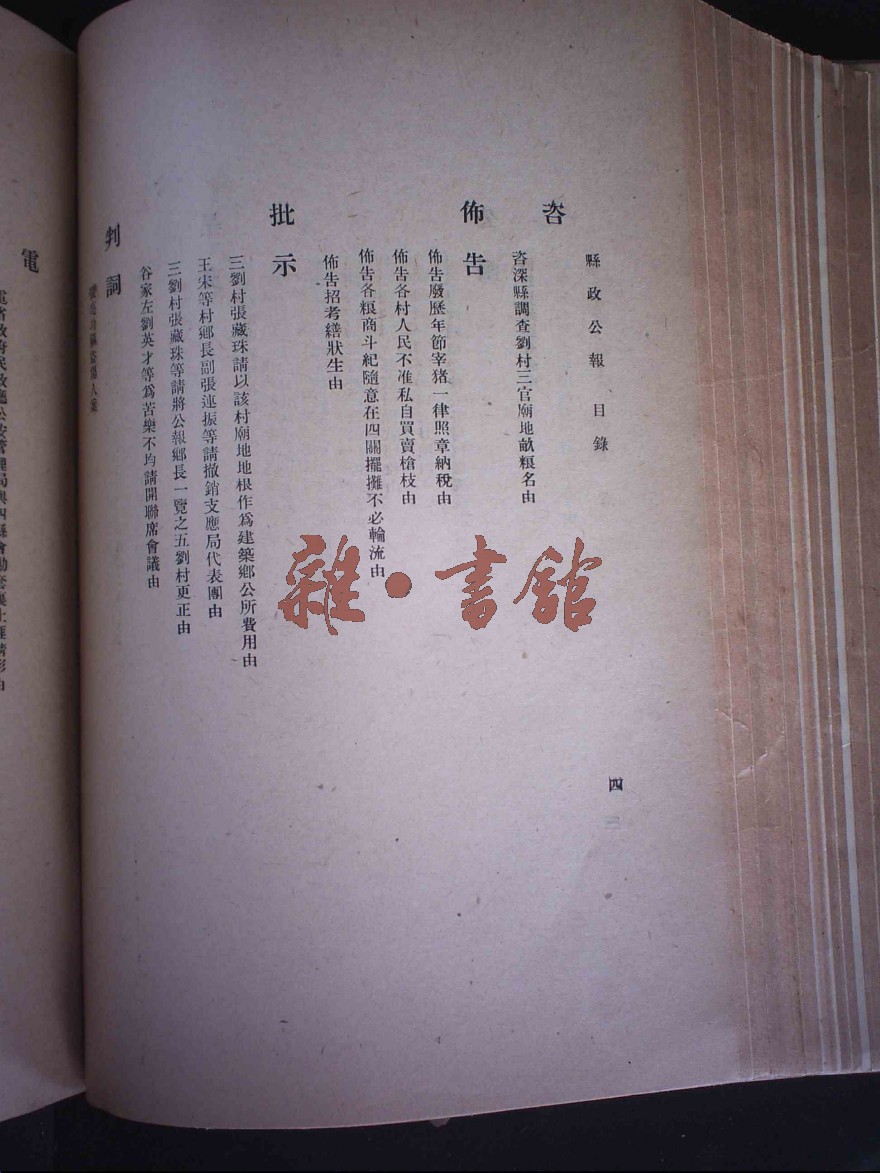 縣政公報 目錄
四
咨
咨深縣調查劉村三官廟地畝粮名由
佈告
佈告廢歷年節宰猪一律照章納稅由
佈告各村人民不准私自買賣槍枝由
佈告各粮商斗紀隨意在四關擺攤不必輪流由
佈告招考繕狀生由
批示
三劉村張藏珠請以該村廟地地根作爲建築鄉公所費用由
王宋等村鄉長副張連振等請撤銷支應局代表團由
三劉村張藏珠等請將公報鄉長一覽之五劉村更正由
谷家左劉英才等爲苦樂不均請開聯席會議由
判詞
盜傷人案
電
電省政府民政廳公安管理局與四縣會勘
情形由
雜·書館